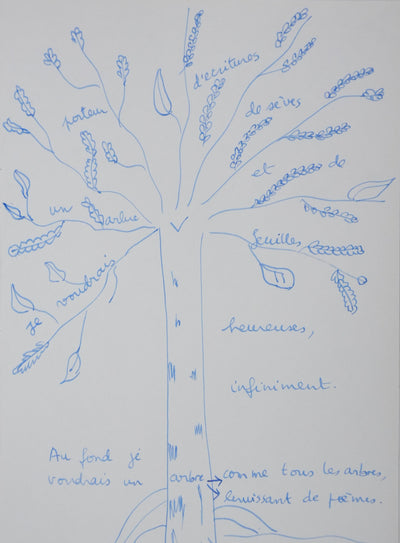 je voudrais
un arbre
porteur
d'écritures
de sèves
et de
feuilles
heureuses,
infiniment.
Au fond je
voudrais un arbre → comme tous les arbres,
bruissant de poèmes.